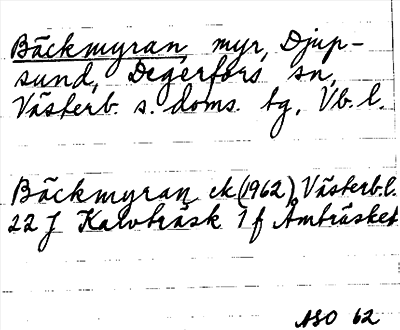 Bäckmyran, myr, Djup-
sund, Degerfors sn,
Västerb. s. doms. tg, Vb. l.
Bäckmyran ek (1962), Västerb. l.
22 J Kalvträsk 7 f Åmträsket
ASO 62